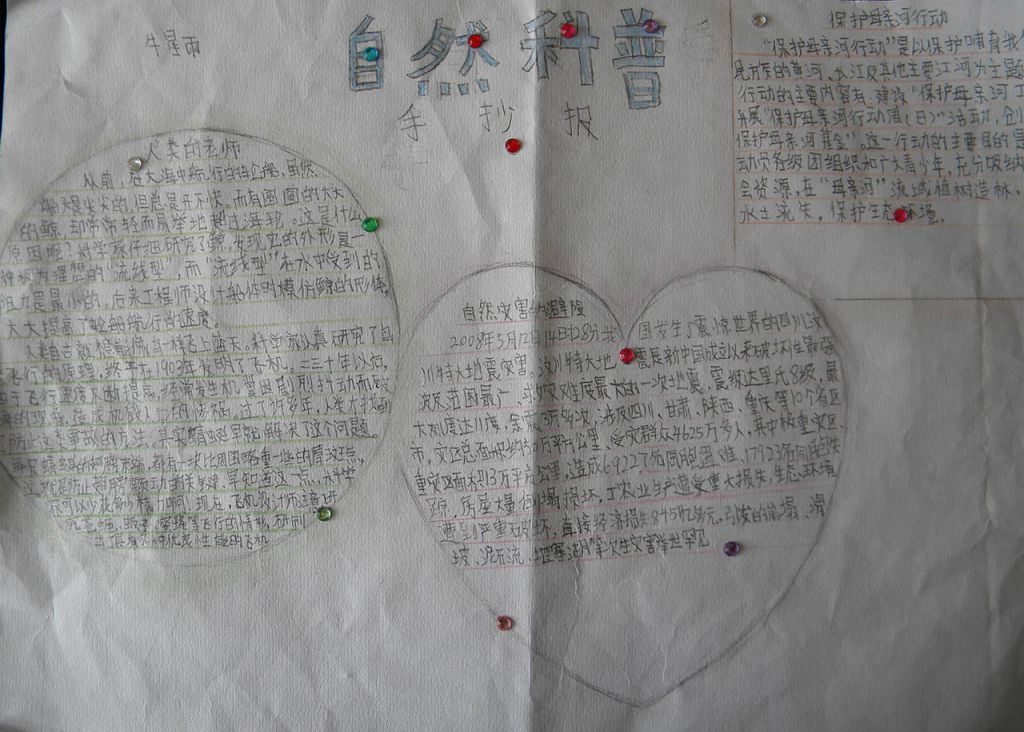 牛星雨
自然科普
手抄报
人类的老师
从前,在大海中航行的轮船,虽然
船头是尖尖的,但总是开不快。而有圆圆的大大
的鲸,却常常轻而易举地超过海轮。这是什么
原因呢?科学家仔细研究了鲸,发现它的外形是一
种极为理想的"流线型",而"流线型"在水中受到的
阻力是最小的,后来工程师设计船体时模仿鲸的形体,
大大提高了轮船航行的速度。
人类自古就想能像鸟一样飞上蓝天。科学家认真研究了鸟
飞行的原理,终于在1903年发明了飞机。三十年以后,
由于飞行速度不断提高,经常发生机翼因剧烈抖动而破
碎的现象,造成机毁人亡的惨祸。过了许多年,人类才找到
了防止这类事故的方法。其实蜻蜓早就解决了这个问题
保护母亲河行动
"保护母亲河行动"是以保护哺育我
民族的黄河、长江及其他主要江河为主题
行动的主要内容有:建设"保护母亲河工
开展"保护母亲河行动周(日)"活动,创
保护母亲河基金"。这一行动的主要目的是
动员各级团组织和广大青少年,充分吸纳
会资源,在"母亲河"流域植树造林,
水土流失,保护生态环境。
自然灾害的避险
2008年5月12日14日28分我国发生了震惊世界的四川汶
川特大地震灾害。汶川特大地震是新中国成立以来破坏性最强
波及范围最广、救灾难度最大的一次地震,震级达里氏8级,最
大烈度达11度,余震3万多次,涉及四川、甘肃、陕西、重庆等10个省区
市,灾区总面积约50万平方公里、受灾群众4625万多人,其中极重灾区、
重灾区面积13万平方公里,造成69227名同胞遇难、17923名同胞失
踪,房屋大量倒塌损坏,工农业生产遭受重大损失,生态环境
遭到严重破坏,直接经济损失8451亿多元,引发的崩塌、滑
坡、泥石流、堰塞湖等次生灾害举世罕见